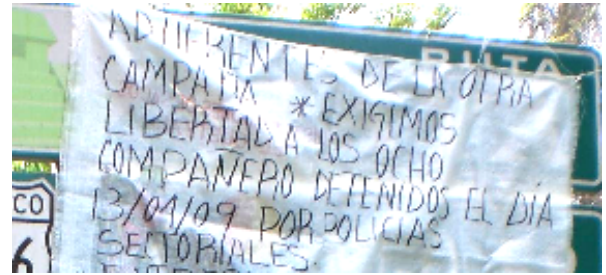 RUTA
ADHERENTES DE LA OTRA
CAMPAÑA * EXIGIMOS
LIBERTAD A LOS OCHO
COMPAÑERO DETENIDOS EL DÍA
13/04/09 POR POLICIAS
SECTORIALES.
CO
6